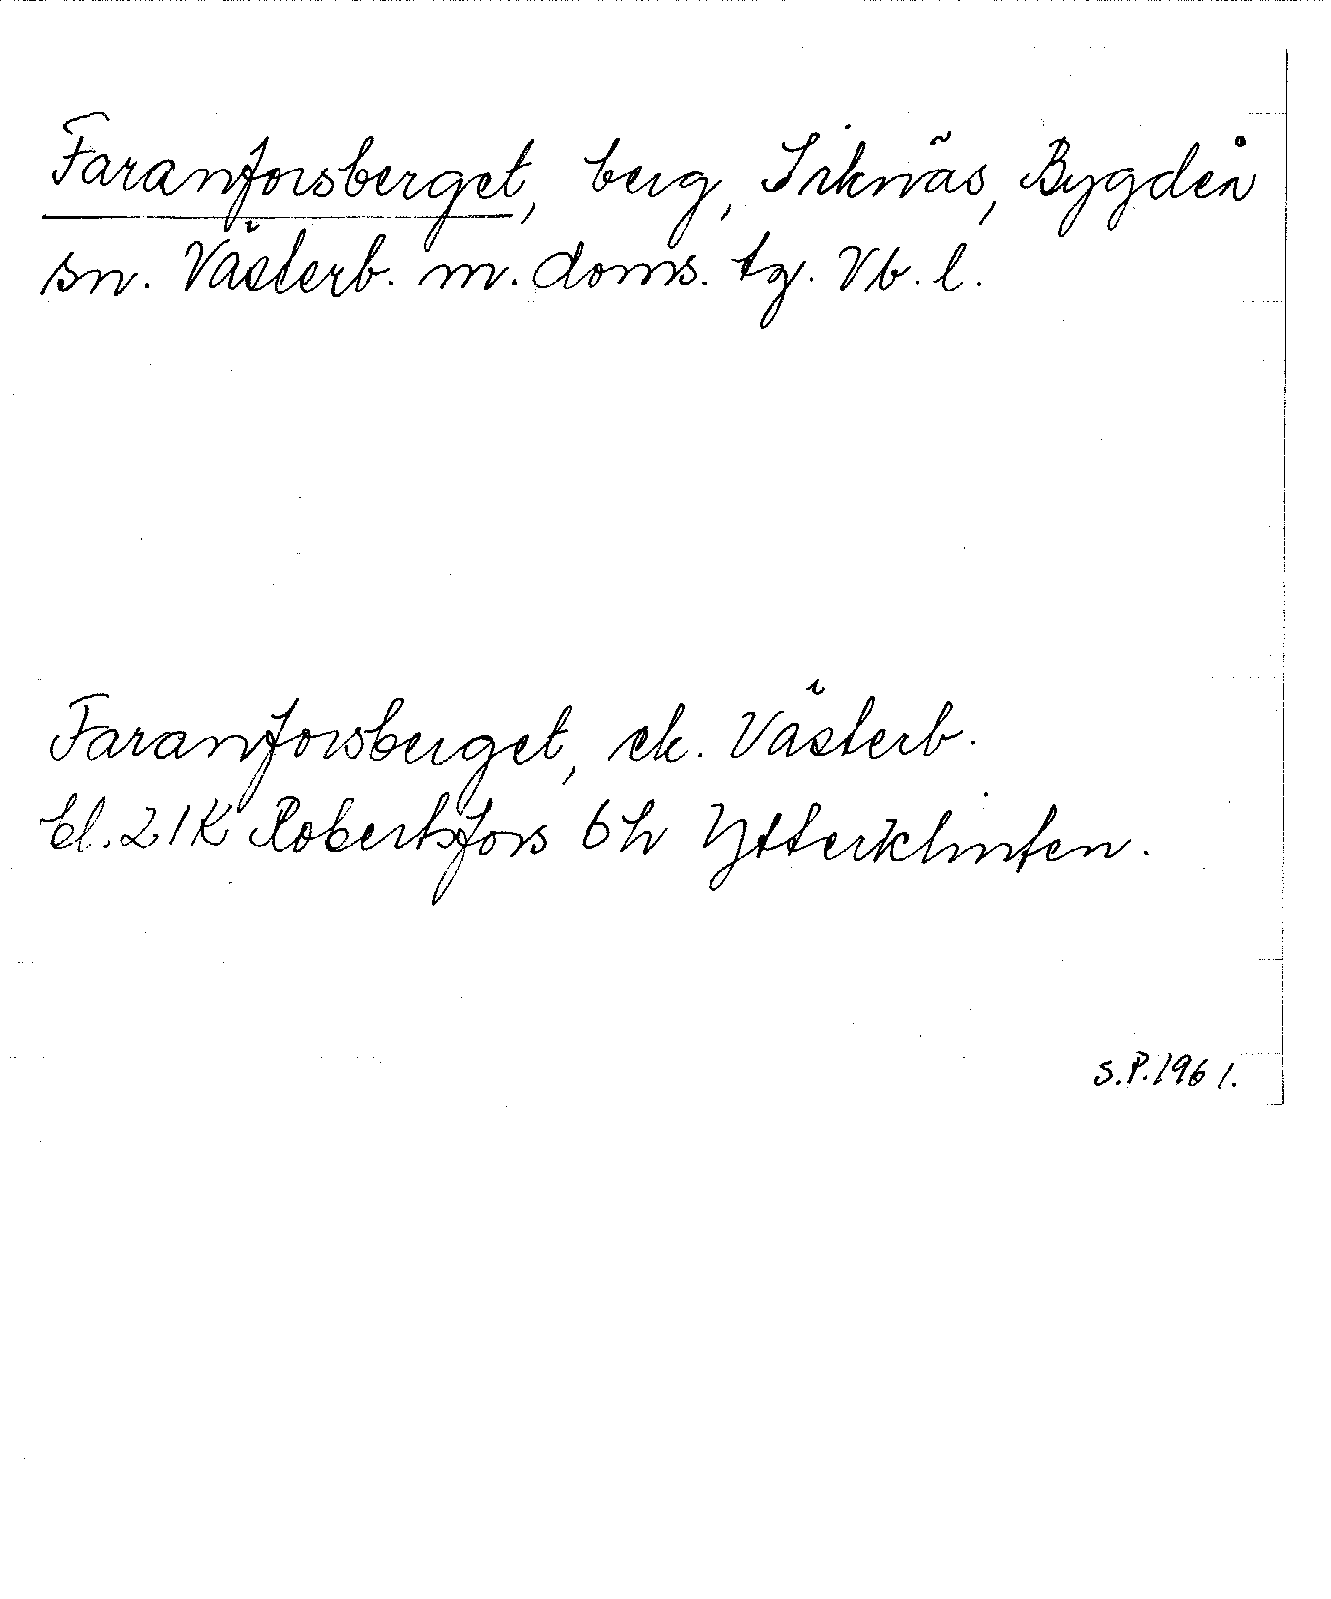 Faranforsberget, berg, Siknäs, Bygdeå
sn. Västerb. m. doms. tg. Vb. l.
Faranforsberget, ek. Västerb.
bl. 21K Robertsfors 6 h Ytterklinten.
S.P. 1961.